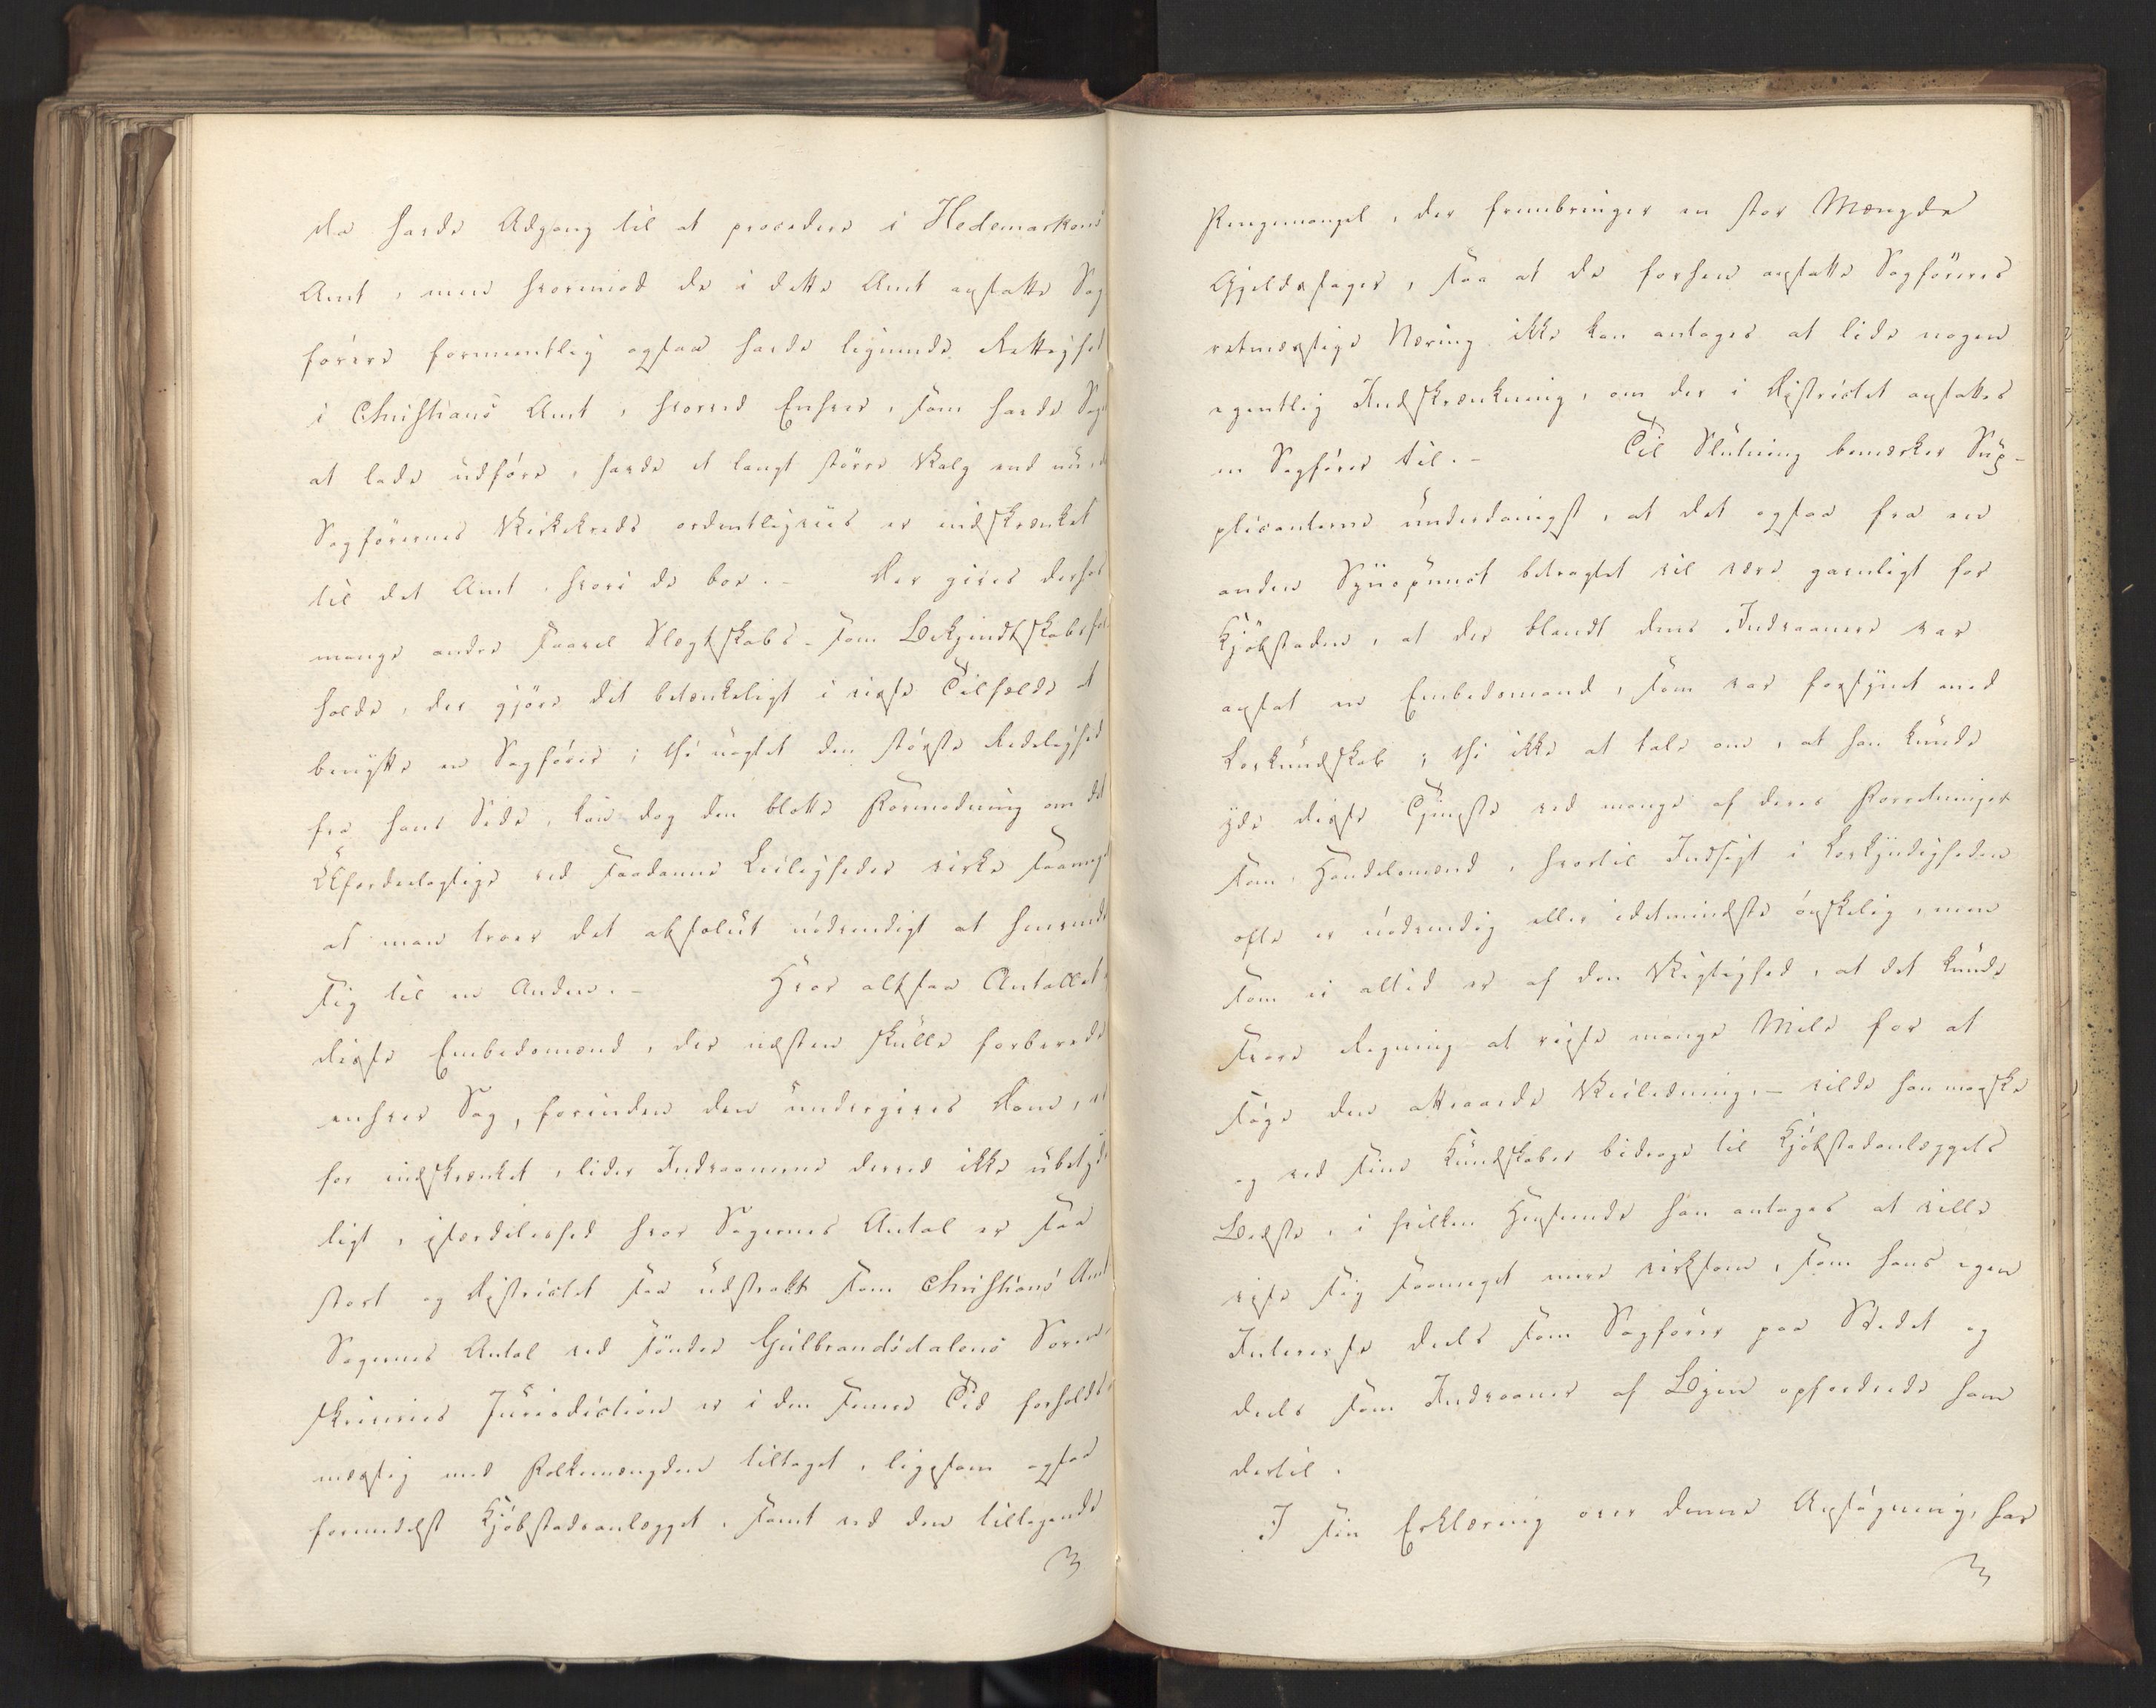 de havde Adgang til at procedere i Hedemarkens
Amt, men hvorimod de i dette Amt ansatte Sag
førere formeentlig ogsaa havde lignende Rettighed
i Christians Amt, hvorved Enhver, som havde Sag
at lade udføre, havde et langt større Valg end nu, d
Sagførernes Virkekreds ordentligviis er indskrænket
til det Amt, hvori de boe. – Der gives derhos
mange andre saavel Slægtskabs- som Bekjendtskabsfor
holde, der gjøre det betænkeligt i visse Tilfælde at
benytte en Sagfører; thi uagtet den største Redelighed
fra hans Side, kan dog den blotte Formodning om det
Ufordeelagtige ved saadanne Leiligheder virke saameget
at man troer det absolut nødvendigt at henvende
sig til en Anden. – Hvor altsaa Antallet
disse Embedsmænd, der næsten skulle forberede
enhver Sag, forinden den undergives Dom, er
for indskrænket, lider Indvaanerne derved ikke ubetyde
ligt, isærdeleshed hvor Sagernes Antal er saa
stort og Districtet saa udstrakt som Christians Amt
Sagernes Antal ved søndre Gulbrandsdalens Soren-
skriveries Jurisdiction er i den senere Tid forholds-
mæssig med Folkemængden tiltaget, ligesom ogsaa
formedelst Kjøbstadsanlægget, samt ved den tiltagende
Pengemangel, der frembringer en stor Mængde
Gjeldssager, saa at de forhen ansatte Sagføreres
retmæssige Næring ikke kan antages at lide nogen
egentlig Indskrænkning, om der i Districtet ansattes
en Sagfører til. – Til Slutning bemærker Sup-
plicanterne underdanigst, at det ogsaa fra en
anden Synspunct betragtet vil være gavnligt for
Kjøbstaden, at der blandt dens Indvaanere var
ansat en Embedsmand, som var forsynet med
Lovkundskab; thi ikke at tale om, at han kunde
yde disse Tjeneste ved mange af deres Forretninger
som Handelsmænd, hvortil Indsigt i Lovkyndigheden
ofte er nødvendig eller idetmindste ønskelig, men
som ei altid er af den Vigtighed, at det kunde
svare Regning at reise mange Mile for at
søge den attraaede Veiledning, – vilde han maaske
og ved sine Kundskaber bidrage til Kjøbstadanlæggets
Bedste, i hvilken Henseende han antages at ville
vise sig saameget mere virksom, som hans egen
Interesse deels som Sagfører paa Stedet og
deels som Indvaaner af Byen opfordrede ham
dertil.
I sin Erklæring over denne Ansøgning, har